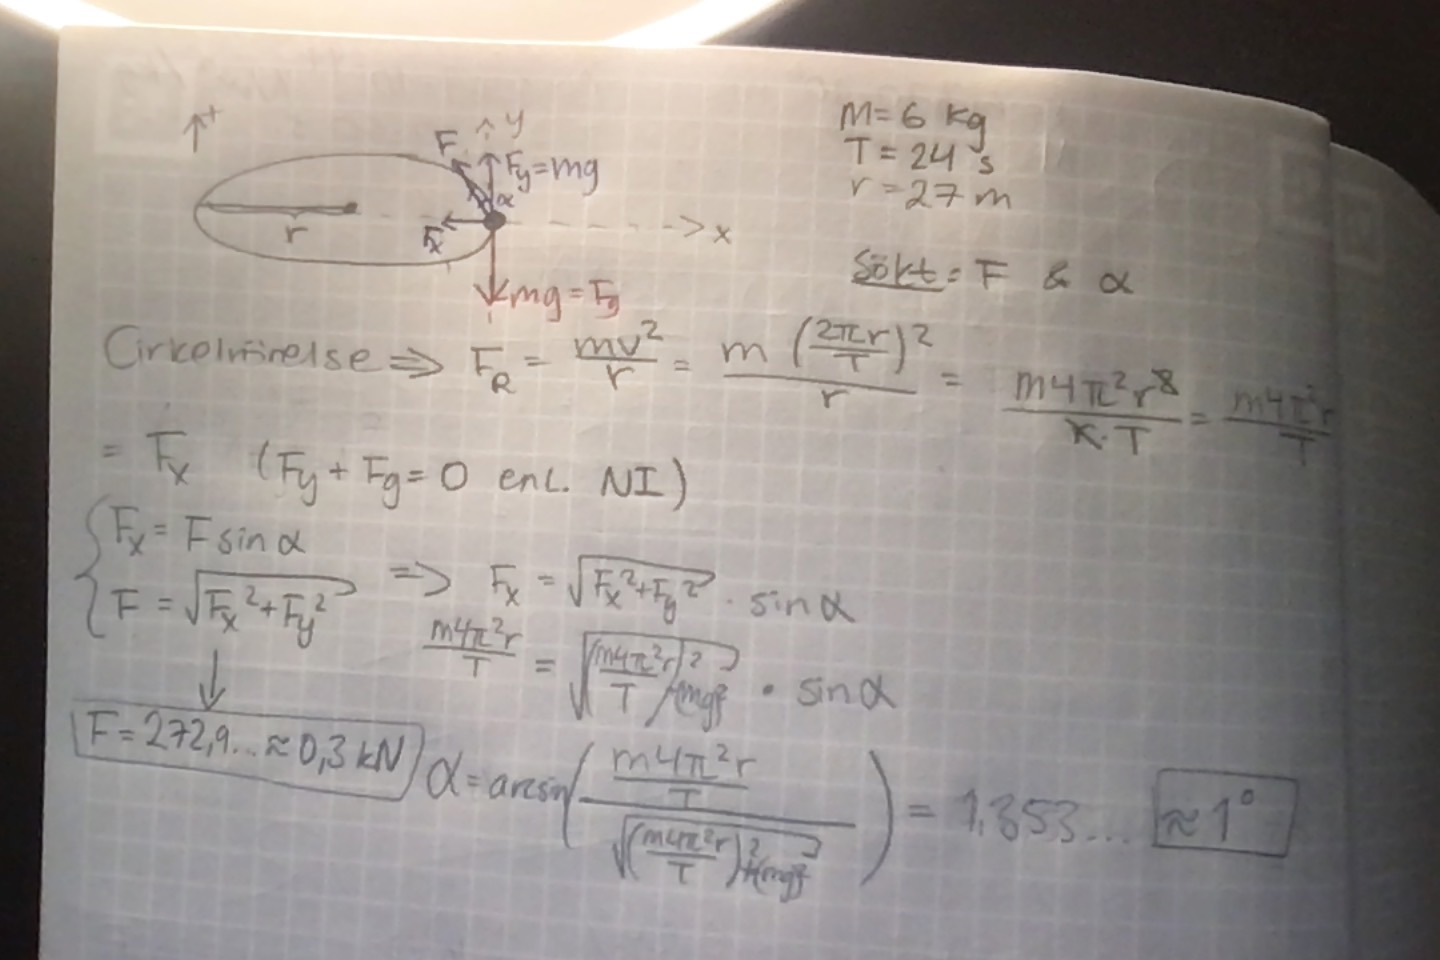 +
y
F
Fy=mg
α
r
Fx
x
mg = Fg
M=6 kg
T=24 s
r=27 m
Sökt: F & α
Cirkelrörelse => F_R = mv²/r = m (2πr/T)²/r = m4π²r²/r·T = m4π²r/T
= Fx (Fy + Fg = 0 enl. NI)
Fx = F sinα
F = √(Fx²+Fy²) => Fx = √(Fx²+Fy²) · sinα
m4π²r/T = √((m4π²r/T)²+(mg)²) · sinα
F=272,9... ≈ 0,3 kN
α = arcsin((m4π²r/T)/√((m4π²r/T)²+(mg)²)) = 1,353... ≈ 1°